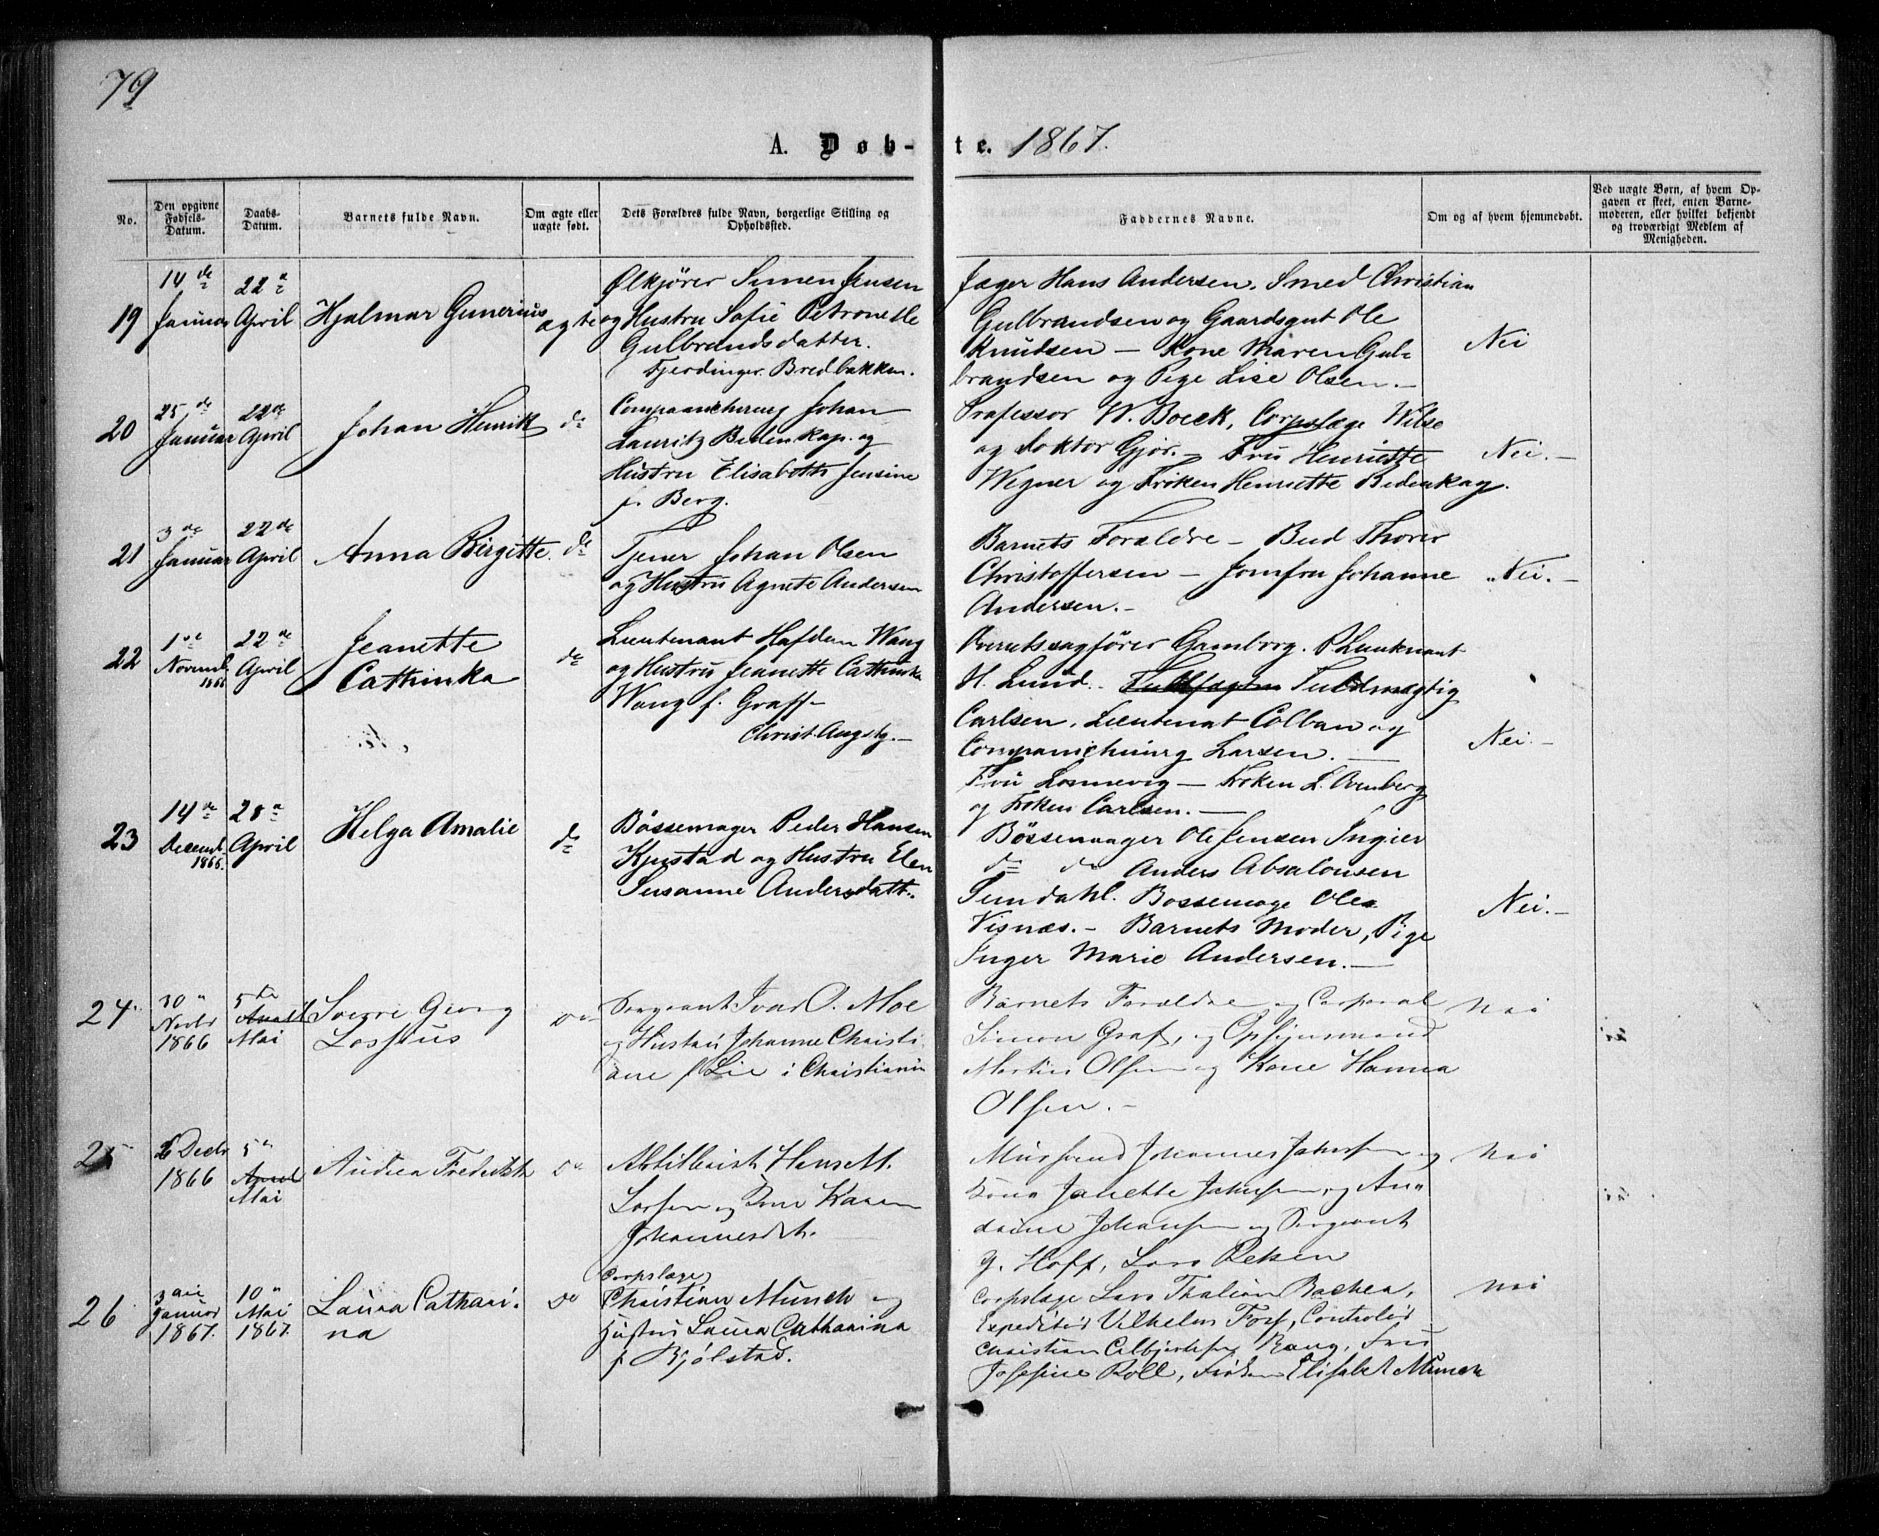 79
A. Døb-
te. 1867.
No.
Den opgivne Fødsels-Datum.
Daabs-Datum.
Barnets fulde Navn.
Om ægte eller uægte født.
Dets Forældres fulde Navn, borgerlige Stilling og Opholdssted.
Faddernes Navne.
Om og af hvem hjemmedøbt.
Ved uægte Børn, af hvem Opgaven er skeet, enten Barnemoderen, eller hvilket bekjendt og troværdigt Medlem af Menigheden.
19
14de Januar
22de April
Hjalmar Gunerius
ægte
Ølkjører Simen Jensen
og Hustru Sofie Petronelle
Gulbrandsdatter.
Fjerdingen. Bredbakken.
Jæger Hans Andersen. Smed Christian
Gulbrandsen og Gaardsgut Ole
Knudsen — Kone Maren Gul-
brandsen og Pige Lise Olsen.—
Nei
20
25de Januar
22de April
Johan Henrik
do
Compagnichirurg Johan
Lauritz Bidenkap. og
Hustru Elisabeth Jensine
f. Berg.
Professor W. Boeck, Corpslæge Wilse
og Doktor Gjør. — Fru Henriette
Wegner og Frøken Henriette Bidenkap.
Nei.—
21
3de Januar
22de April
Anna Birgitte.
do
Tjener Johan Olsen
og Hustru Agnete Andersen
Barnets Forældre — Bud Thorer
Christoffersen — Jomfru Johanne
Andersen.—
Nei.—
22
1ste Novemb. 1866
22de April
Jeanette
Cathinka
do
Lieutenant Halfdan Wang
og Hustru Jeanette Cathinka
Wang f. Graff—
Christ. Augstg.—
Overretssagfører Gamborg. P. Lieutenant
H. Lund. Fuldmægtig
Carlsen, Lieutenat Colban og
Compagnichirurg Larsen.—
Fru Lonnevig — Frøken L. Ovenberg
og Frøken Carlsen.—
Nei.—
23
14de Decemb. 1866.
28de April
Helga Amalie
do
Bössemager Peder Hansen
Kjerstad og Hustru Elen
Susanne Andersdatt.
Bössemager Ole Jensen Ingier
do do Anders Absalonsen
Sundahl. Bossemage Ole
Visnæs.— Barnets Moder, Pige
Inger Marie Andersen.—
Nei.—
24
30 Novbr 1866
5te April Mai
Sverre Georg
Lossius
do
Sergeant Ivar O. Moe
og Hustru Johanne Christi
ane f Lie i Christiania
Barnets Forældre og Corporal
Simon Graf, og Opsynsmand
Martin Olsen og Kone Hanna
Olsen.—
Nei
25
6 Decbr 1866
5te April Mai
Andrea Fredrikke
do
Artillerist Hans M.
Larsen og Kone Karen
Johannesdt.
Mursvend Johannes Johnsen og
Kone Janette Johnsen, og An
drine Johansen og Sergeant
G. Hoff, Lars Olsen
Nei
26
3die Januar 1867.
10 Mai 1867.
Laura Cathari-
na
do
Corpslæge
Christian Munch og
Hustru Laura Catharina
f. Bjølstad.
Corpslæge Lars Thalian Backer,
Expeditør Vilhelm Foss, Controlør
Christian Bang, Fru
Josefine Roll, Frøken Elisabet Munch
Nei